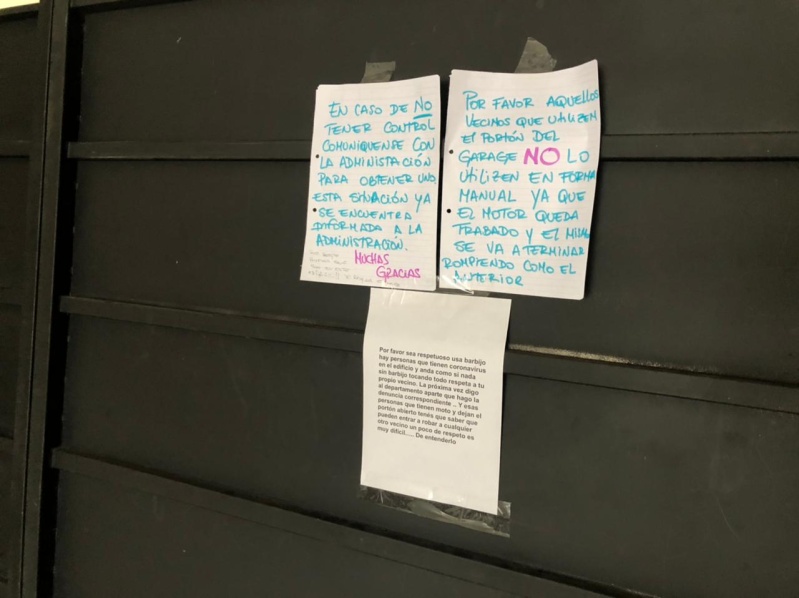 EN CASO DE NO
TENER CONTROL
COMUNIQUENSE CON
LA ADMINISTACIÓN
PARA OBTENER UNO
ESTA SITUACIÓN YA
SE ENCUENTRA
INFORMADA A LA
ADMINISTRACIÓN.
MUCHAS
GRACIAS
POR FAVOR AQUELLOS
VECINOS QUE UTILIZEN
El PORTÓN DEL
GARAGE NO LO
UTILIZEN EN FORMA
MANUAL YA QUE
EL MOTOR QUEDA
TRABADO Y EL MISMO
SE VA A TERMINAR
ROMPIENDO COMO EL
ANTERIOR
Por favor sea respetuoso usa barbijo
hay personas que tienen coronavirus
en el edificio y anda como si nada
sin barbijo tocando todo respeta a tu
propio vecino. La próxima vez digo
al departamento aparte que hago la
denuncia correspondiente .. Y esas
personas que tienen moto y dejan el
portón abierto tenés que saber que
pueden entrar a robar a cualquier
otro vecino un poco de respeto es
muy dificil..... De entenderlo